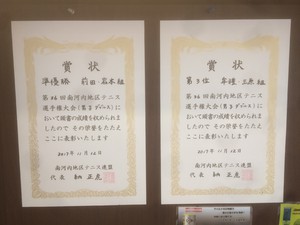 賞状
準優勝 前田・岩本組
第26回南河内地区テニス
選手権大会(男子ダブルス)に
おいて頭書の成績を収められ
ましたので その栄誉をたたえ
ここに表彰いたします
2017年11月12日
南河内地区テニス連盟
代表
賞状
第3位
第26回南河内地区テニス
選手権大会(男子ダブルス)に
おいて頭書の成績を収められ
ましたので その栄誉をたたえ
ここに表彰いたします
2017年11月12日
南河内地区テニス連盟
代表